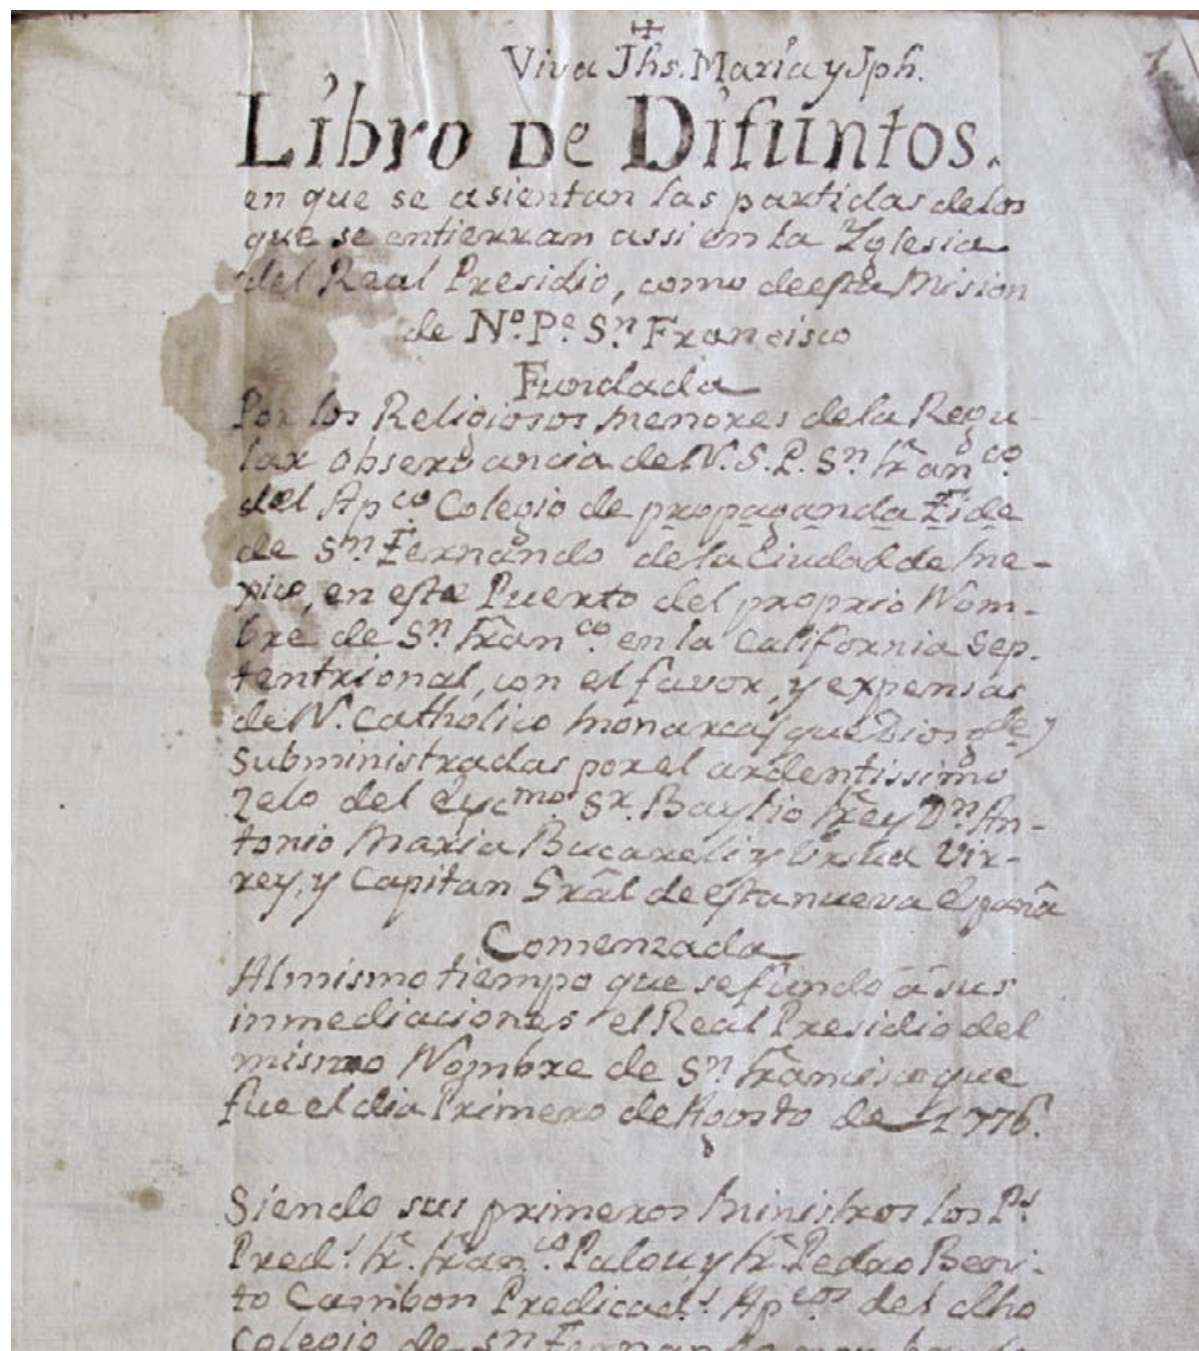 Viva Jhs. Maria y Jph.
Libro De Difuntos.
en que se asientan las partidas delos
que se entierran assi en la Yglesia
del Real Presidio, como deesta Mision
de Nº. Pe. Sn. Francisco
Fundada
Por los Religiosos menores dela Regu-
lar observancia de N. S. P. Sn. Franco.
del Apco. Colegio de propaganda Fide
de Sn. Fernando dela Ciudad de Me-
xico, en este Puerto del proprio Nom-
bre de Sn. Franco. en la California Sep-
tentrional, con el favor, y expensas
de N. Catholico Monarca (que Dios gde)
Subministradas por el ardentissimo
Zelo del Excmo. Sr. Baylio Frey Dn. An-
tonio Maria Bucareli y Ursua Vir-
rey, y Capitan Grâl de esta nueva España
Comenzada
Al mismo tiempo que se fundo â sus
inmediaciones el Real Presidio del
mismo Nombre de Sn. Francisco que
fue el dia Primero de Agosto de 1776.
Siendo sus primeros Ministros los Ps.
Preds. Fr. Franco. Palou y Fr. Pedro Beni-
to Cambon Predicads. Apcos del dho
Colegio de Sn. Fernando